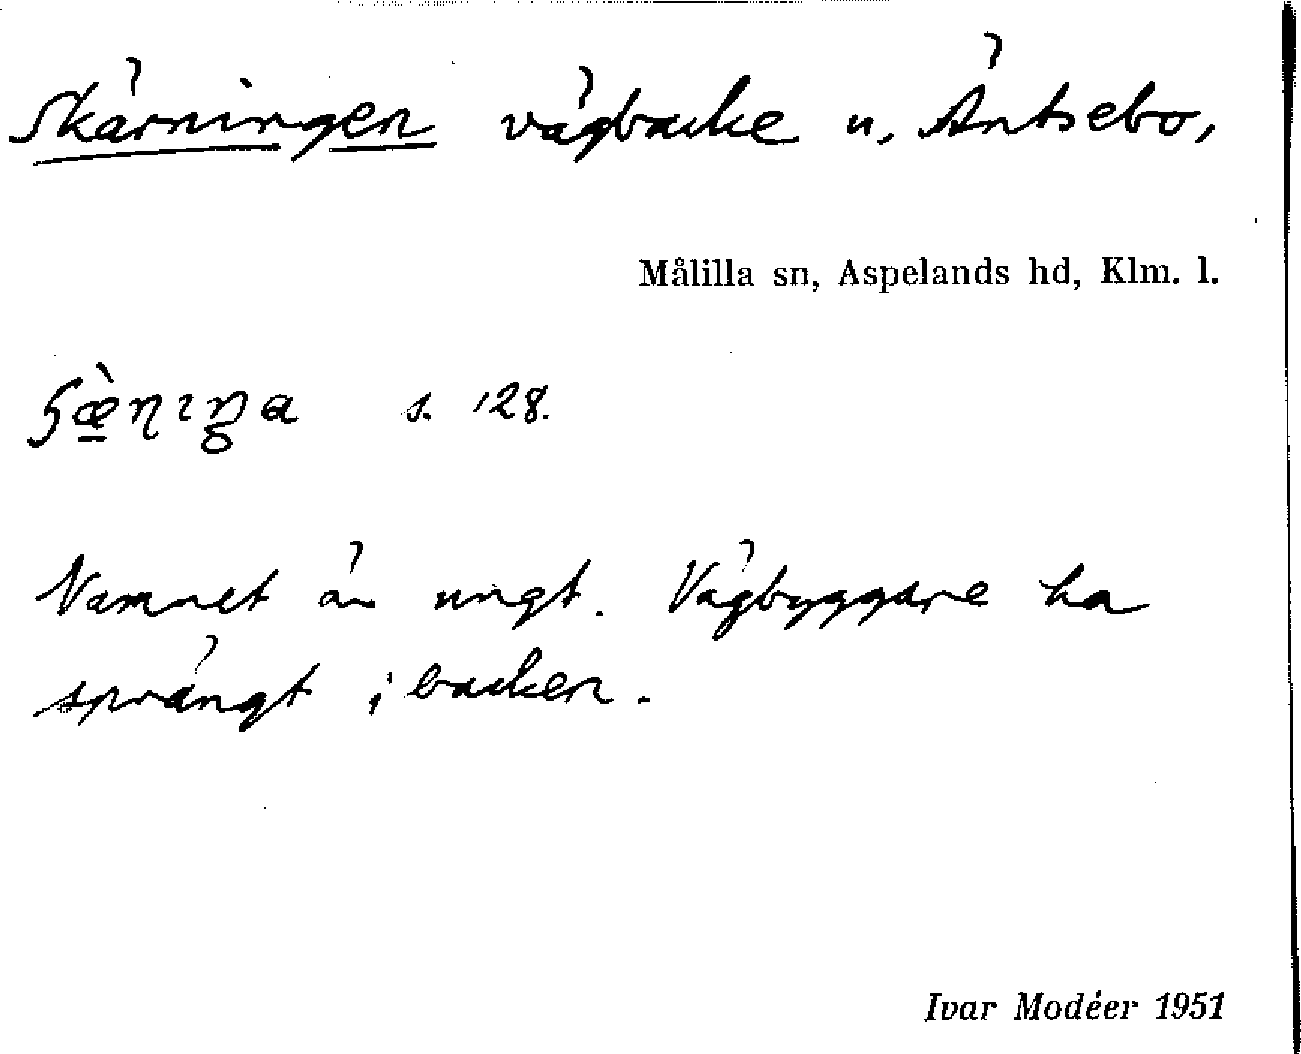 Skärningen vägbacke u, Äntsebo,
Målilla sn, Aspelands hd, Klm. l.
s. 128.
Namnet är ungt. Vägbyggare ha
sprängt i backen.
Ivar Modéer 1951